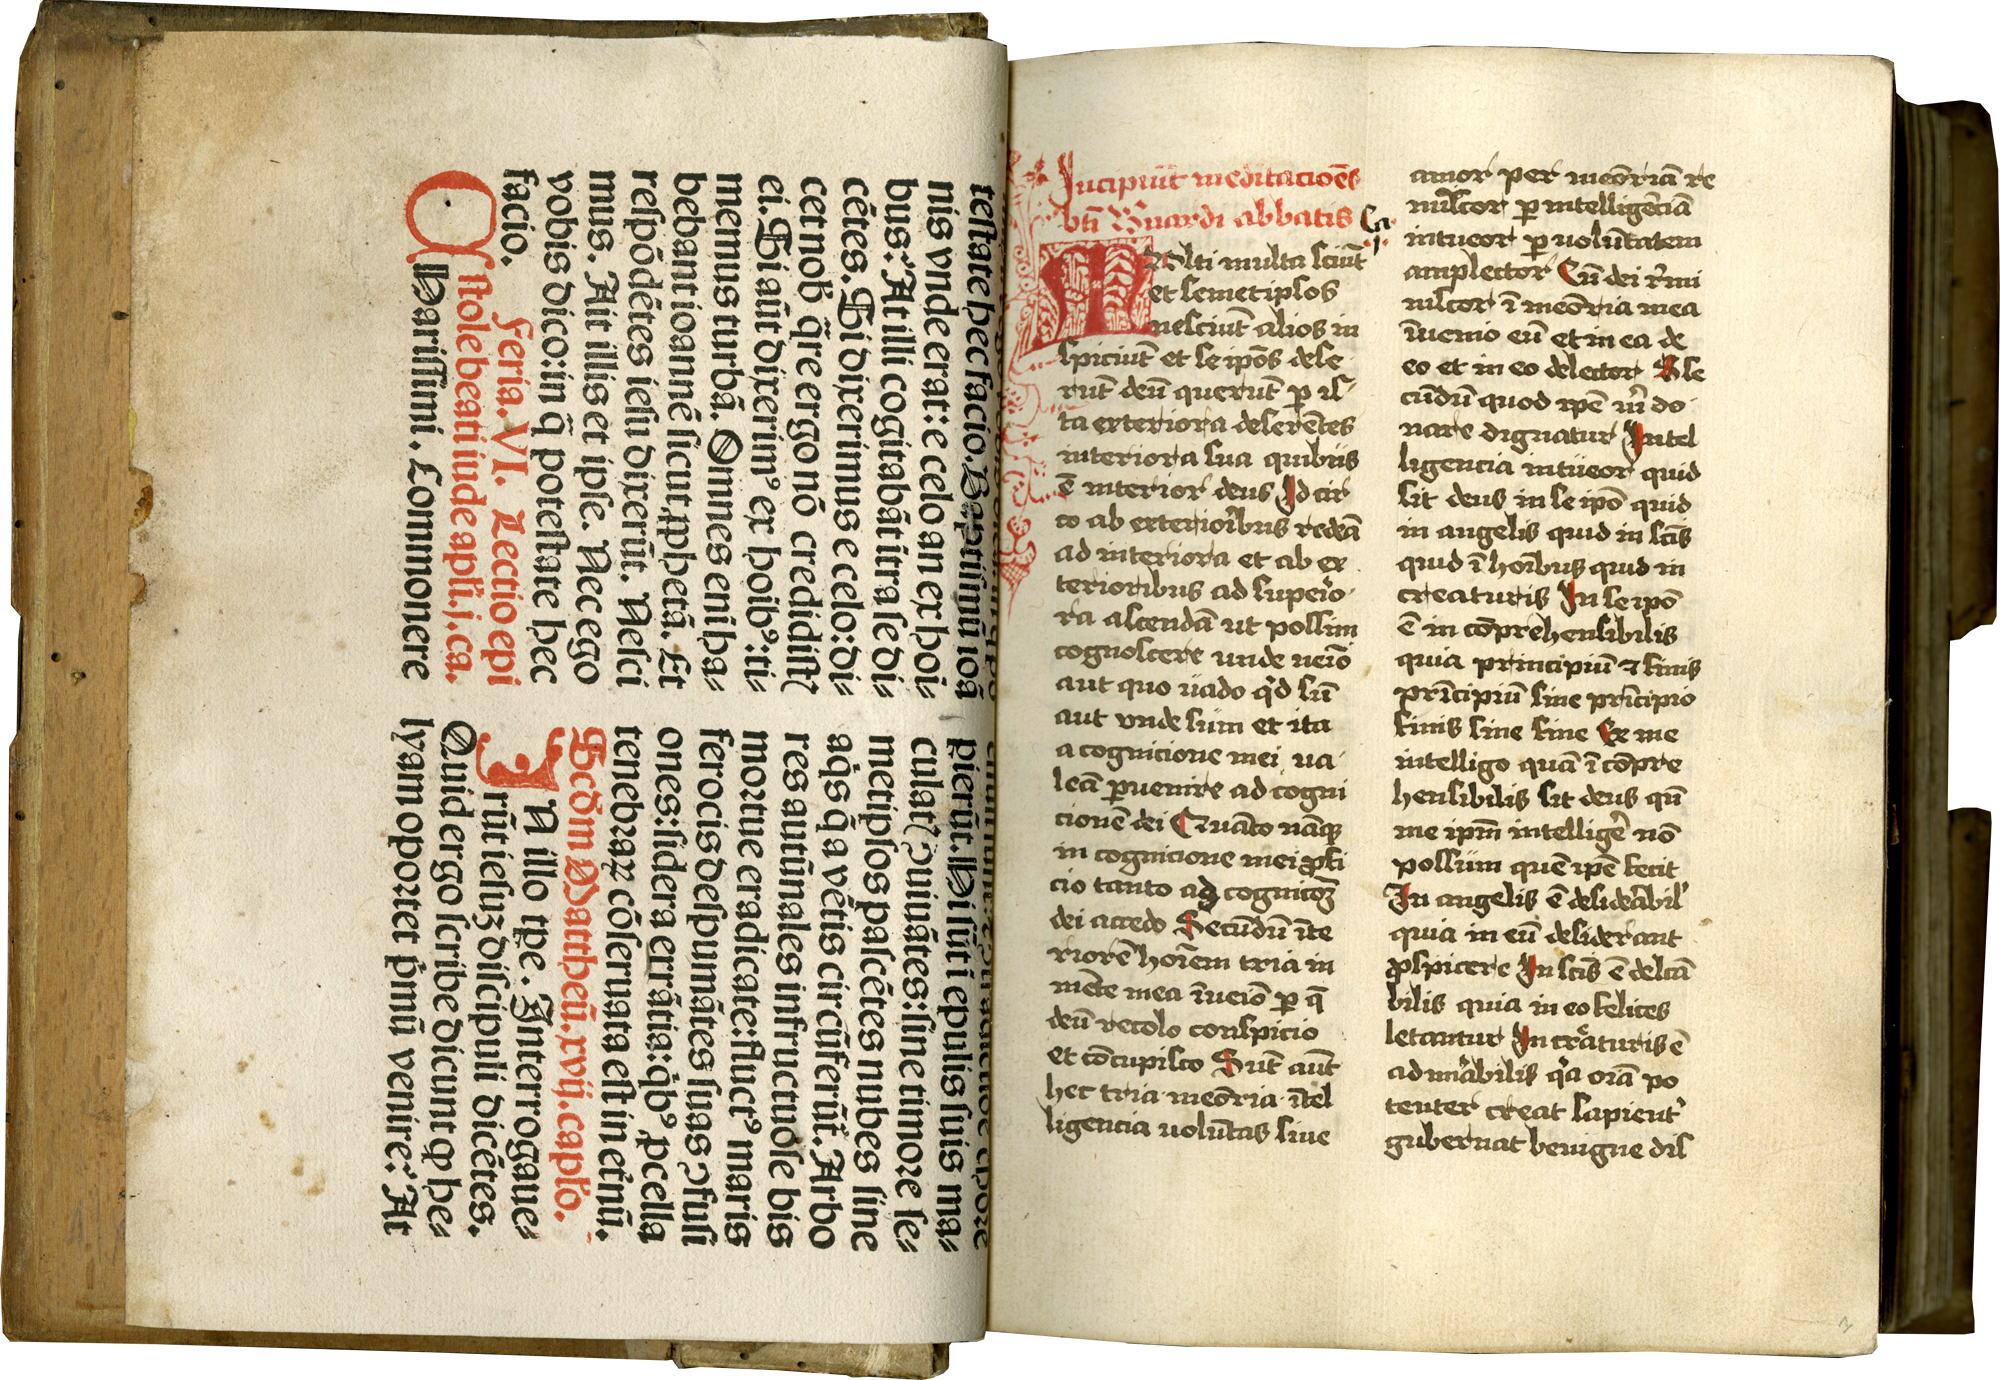 teſtate hec facio. Baptiſmū ioā
nis vnde erat: e celo an ex hōi⸗
bus: At illi cogitabāt ītra ſe di⸗
cētes. Si dixerimus e celo: di⸗
cet nob̄ q̄re ergo nō credidiſtꝭ
ei. Si aūt dixerimꝰ ex hoībꝰ: ti⸗
memus turbā. Omnes enī ha⸗
bebant ioannē ſicut ꝓphetā. Et
reſpōdētes ieſu dixerūt. Neſci
mus. Ait illis et ipſe. Nec ego
vobis dico: in q̄ poteſtate hec
facio.
Feria. VI. Lectio epi
ſtole beati iude apl̄i. j. ca.
Hariſſimi. Commonere
pierūt. Hi ſūt ī epulis ſuis ma⸗
culatꝭ ꝯuiuātes: ſine timore ſe⸗
metipſos paſcētes nubes ſine
aq̄s q̄ a vētis circūferūt. Arbo
res autūnales infructuoſe bis
mortue eradicate: fluctꝰ maris
ferocis deſpumātes ſuas ꝯfuſi
ones: ſidera errātia: q̄bꝰ ꝓcella
tenebraꝝ cōſeruata eſt in et̄nū.
Scd̄m Mattheū. xvij. capl̓o.
IN illo tp̄e. Interrogaue⸗
rūt ieſuꝫ diſcipuli dicētes.
Quid ergo ſcribe dicunt ꝙ he⸗
lyam oportet pͥmū venire: At
Incipiūt meditacioēs
bt̄i Bn̄ardi abbatis Ca
j
MUlti multa sciūt
et semetipsos
nesciūt alios in
spiciūt et se ip̄os dese
rūt deū querūt ꝑ is
ta exteriora deserētes
interiora sua quibus
ē interior deus Id cir
co ab exterioribus redeā
ad interiora et ab ex
terioribus ad superio
ra ascendā ut possim
cognoscere unde uenio
aut quo uado qͥd sū
aut unde sum et ita
a cognicione mei ua
leā ꝑuenire ad cogni
cionē dei Quāto nāqꝫ
in cognicione mei ꝓfi
cio tanto ad cognicōꝫ
dei accedo Secūdū īte
riorē hoīem tria in
mēte mea īuenio ꝑ q̄
deū recolo conspicio
et cōcupisco Sūt aūt
hec tria meōria ītel
ligencia uolūtas siue
amor per meōriā re
mīscor ꝑ intelligēciā
intueor ꝑ uolūtatem
amplector Cū dei rͤmi
niscor ī meōria mea
īuenio eū et in ea de
eo et in eo delector Se
cūdū quod ip̄e m̄ do
nare dignatur Intel
ligencia intueor quid
sit deus in se ip̄o quid
in angelis quid in sc̄is
quid ī hoībus quid in
creaturis In se ip̄o
ē in cōprehensibilis
quia principiū ⁊ finis
prīcipiū sine prīcipio
finis sine fine Ex me
intelligo quā ī cōpre
hensibilis sit deus qn̄
me ip̄m intelligeͤ nō
possum quē ip̄e fecit
In angelis ē desiderͣbil
quia in eū desiderant
ꝓspicere In sc̄is ē delcā
bilis quia in eo felices
letantur In crͤaturis ē
admirͣabilis qͣa oīa po
tenter creat sapientͥ
gubernat benigne dis